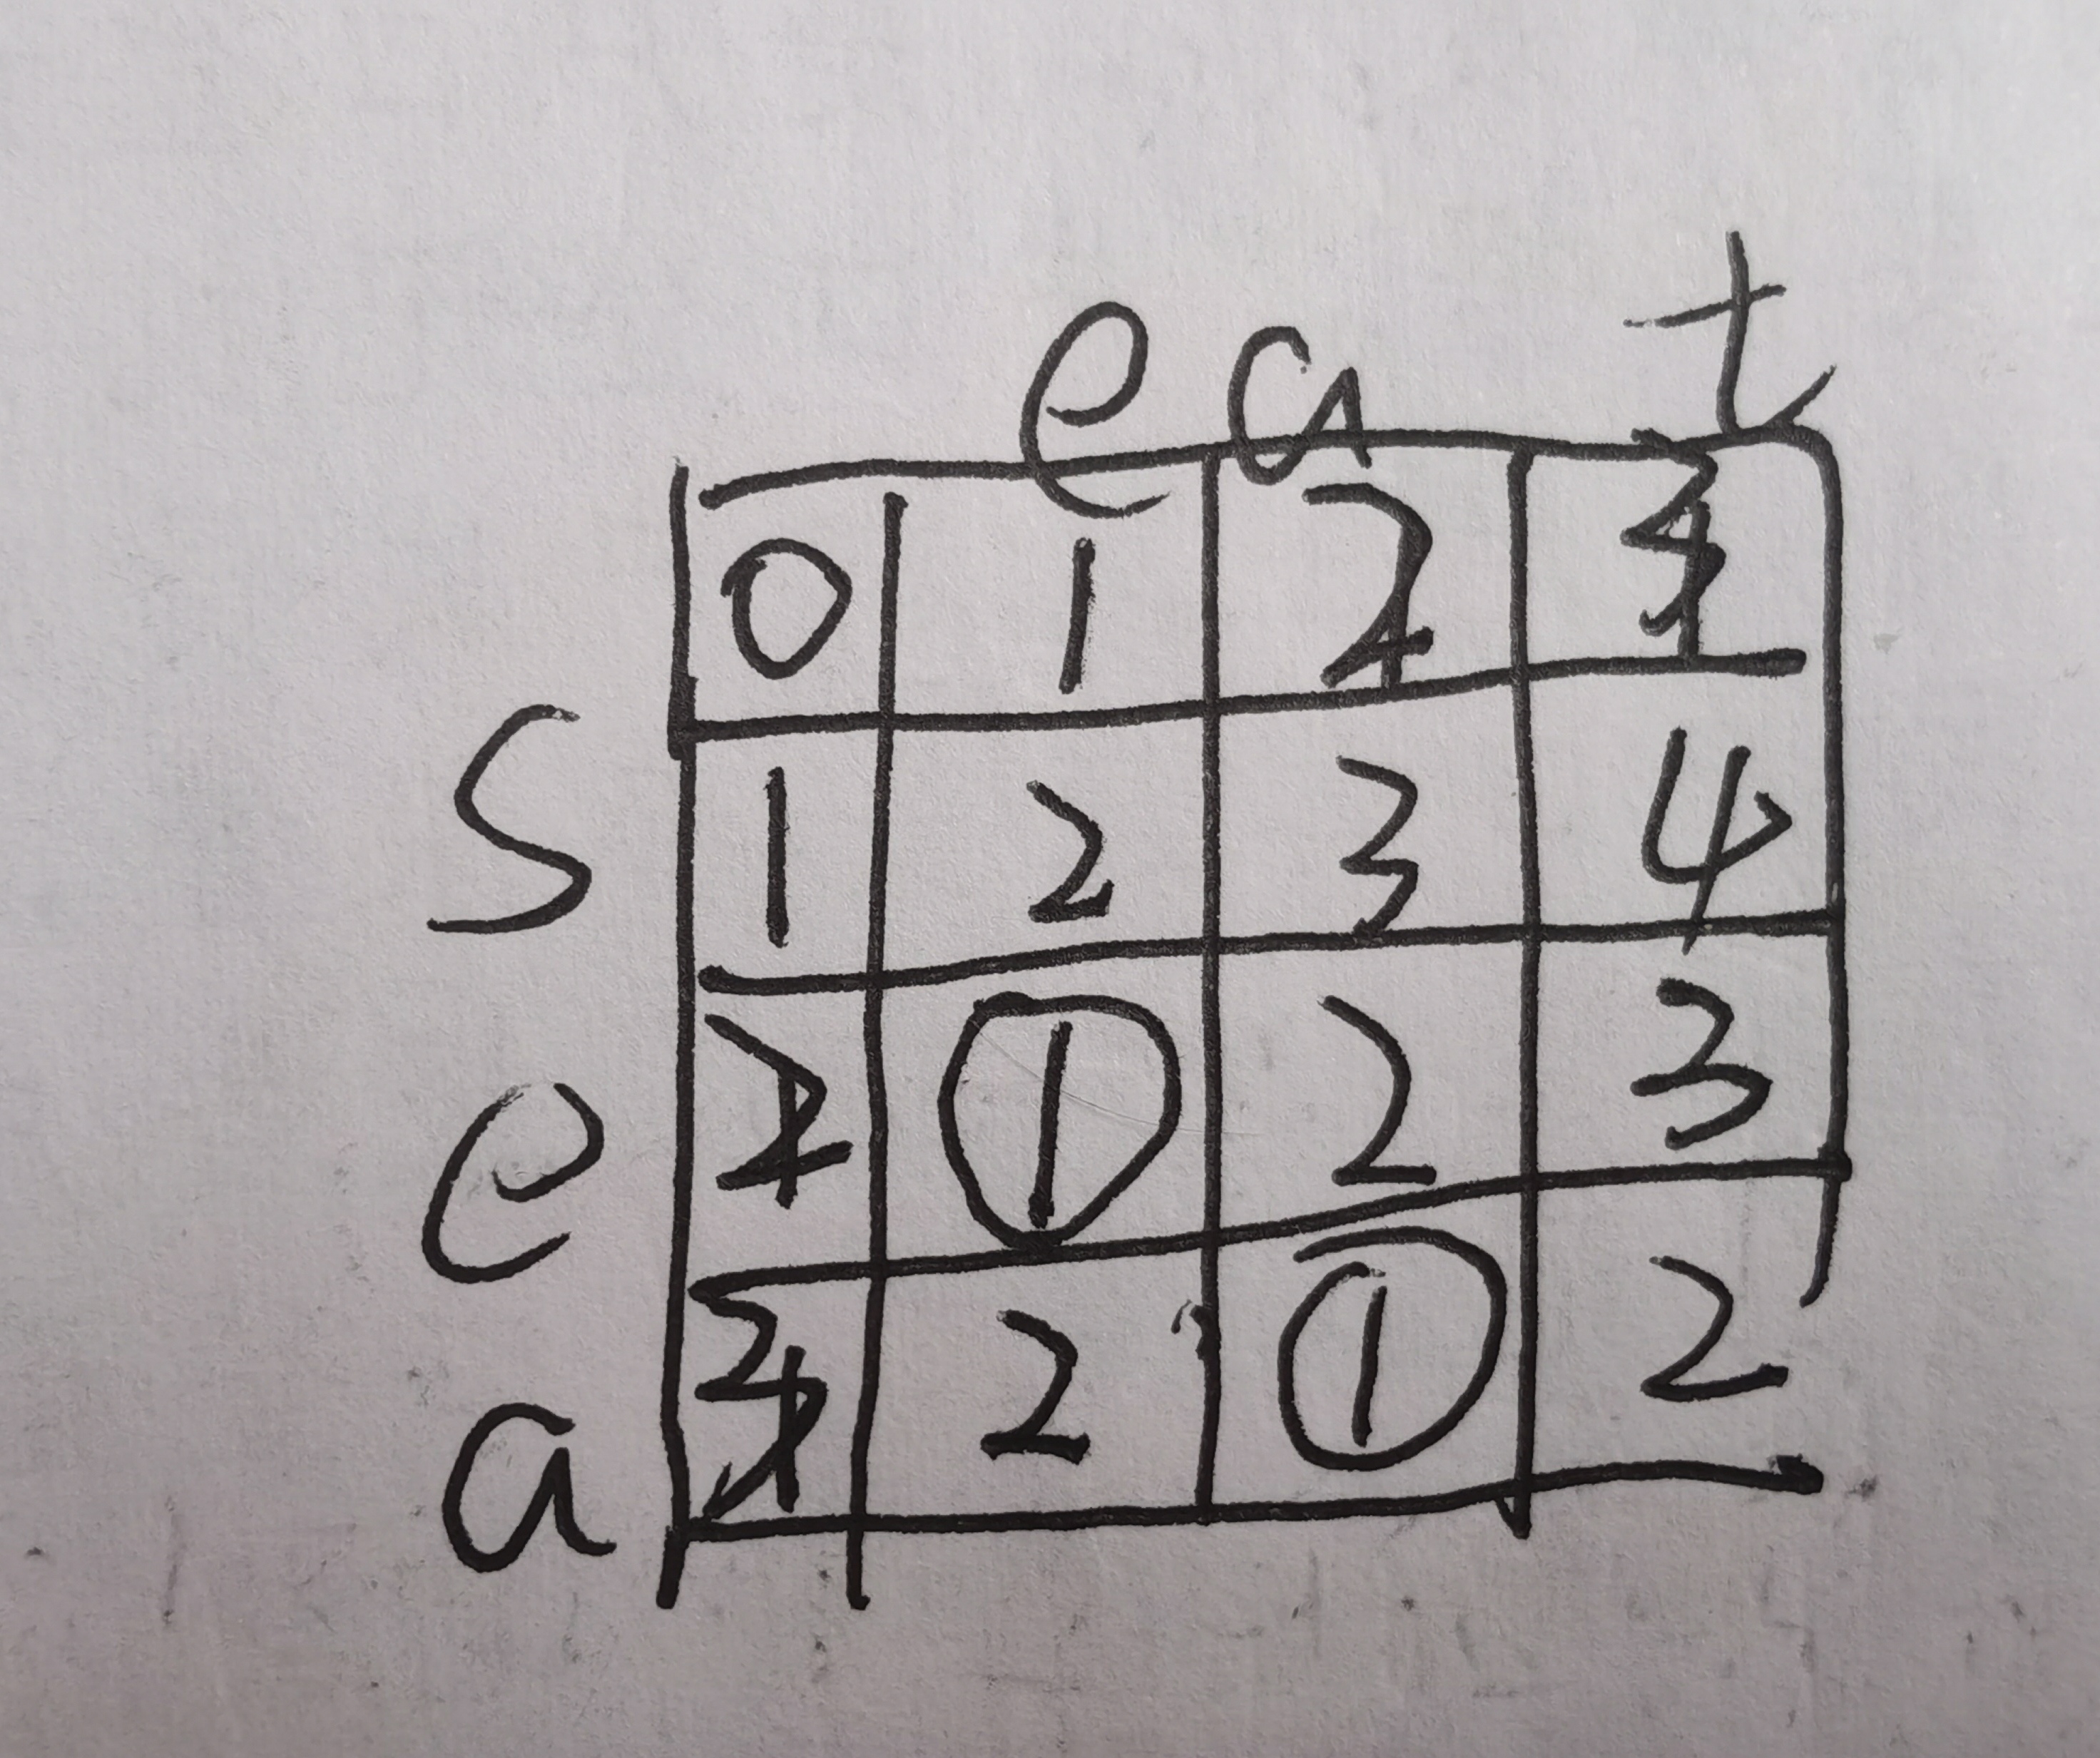 e a t
0 1 2 3
S 1 2 3 4
e 2 ① 2 3
a 3 2 ① 2